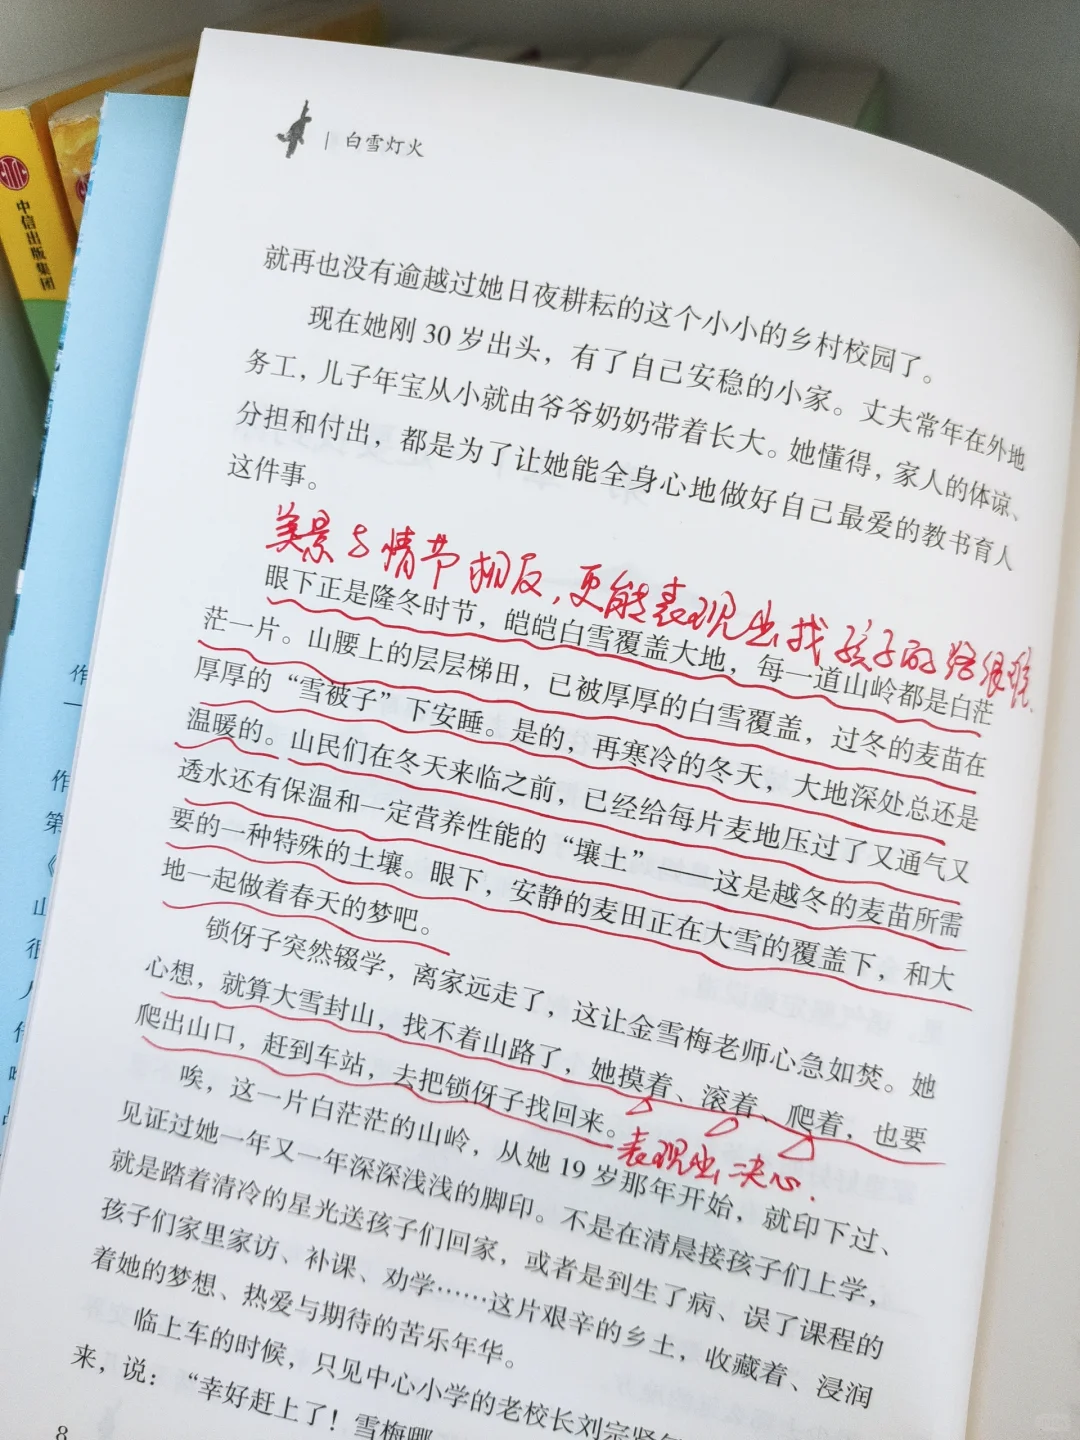 中信出版集团
白雪灯火
就再也没有逾越过她日夜耕耘的这个小小的乡村校园了。
现在她刚30岁出头，有了自己安稳的小家。丈夫常年在外地
务工，儿子年宝从小就由爷爷奶奶带着长大。她懂得，家人的体谅、
分担和付出，都是为了让她能全身心地做好自己最爱的教书育人
这件事。
美景与情节相反，更能表现出找孩子的
眼下正是隆冬时节，皑皑白雪覆盖大地，每一道山岭都是白茫
茫一片。山腰上的层层梯田，已被厚厚的白雪覆盖，过冬的麦苗在
厚厚的“雪被子”下安睡。是的，再寒冷的冬天，大地深处总还是
温暖的。山民们在冬天来临之前，已经给每片麦地压过了又通气又
透水还有保温和一定营养性能的“壤土”——这是越冬的麦苗所需
要的一种特殊的土壤。眼下，安静的麦田正在大雪的覆盖下，和大
地一起做着春天的梦吧。
锁伢子突然辍学，离家远走了，这让金雪梅老师心急如焚。她
心想，就算大雪封山，找不着山路了，她摸着、滚着、爬着，也要
爬出山口，赶到车站，去把锁伢子找回来。
表现出决心.
唉，这一片白茫茫的山岭，从她19岁那年开始，就印下过、
见证过她一年又一年深深浅浅的脚印。不是在清晨接孩子们上学，
就是踏着清冷的星光送孩子们回家，或者是到生了病、误了课程的
孩子们家里家访、补课、劝学……这片艰辛的乡土，收藏着、浸润
着她的梦想、热爱与期待的苦乐年华。
临上车的时候，只见中心小学的老校长刘宗贤
来，说：“幸好赶上了！雪梅哪
8
作
作
第
《
山
很